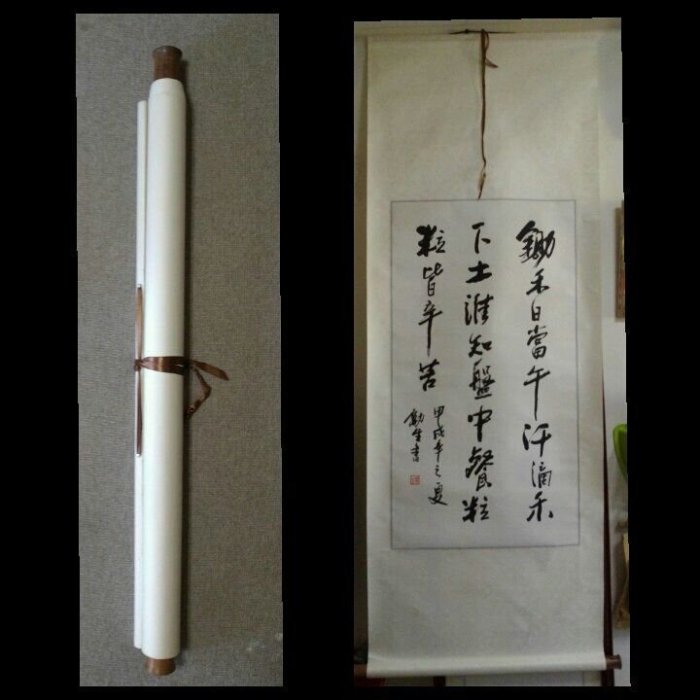 鋤禾日當午汗滴禾
下土誰知盤中餐粒
粒皆辛苦
甲戌年之夏
勤生書